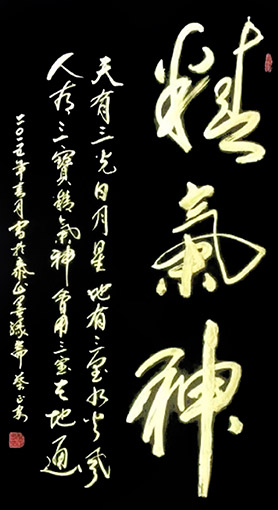 精氣神
天有三光日月星地有三宝水火风
人有三寳精氣神會用三宝天地通
二〇二五年 月書於泰山墨缘斋蔡正